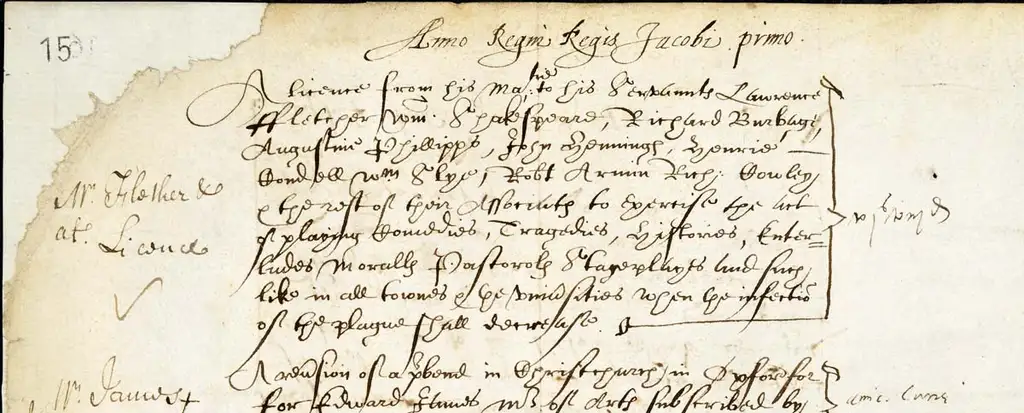 15
Anno Regni Regis Jacobi primo
A licence from his Matie to his Servaunts Lawrence
ffletcher Wm. Shakespeare, Richard Burbage,
Augustine Phillipps, John Hennings, Henrie
Condell Wm Slye, Robt Armin Rich: Cowley,
the rest of their Associats to exercise the art
Mr. Flether &
al. Licence
of playing Comedies, Tragedies, Histories, Enter=
ludes Moralls Pastoralls Stageplayes and such
like in all townes & the vniu'sities when the infectio
of the plague shall decrease.
Mr. James
A reu'sion of a p'bend in Christchurch in Oxford for
for Edward James Mr of Arts subscribed by